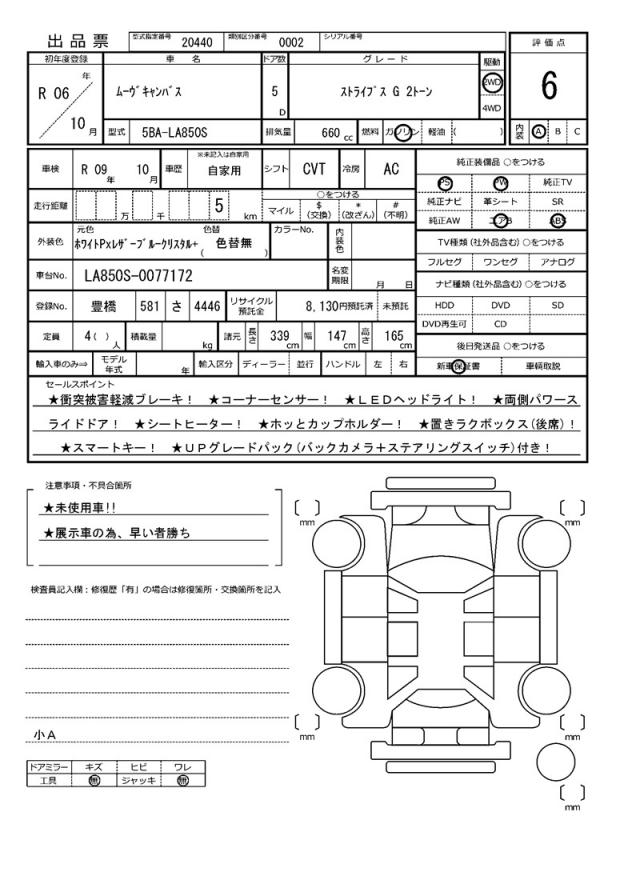 出品票 型式指定番号 20440 類別区分番号 0002 シリアル番号
評価点
6
内装 A B C
初年度登録 車名 ドア数 グレード 駆動
R 06 年 10 月
ムーヴキャンバス 5 D ストライプス G 2トーン 2WD 4WD
型式 5BA-LA850S 排気量 660 cc 燃料 ガソリン 軽油 ( )
車検 R 09 年 10 月 車歴 ※未記入は自家用 自家用 シフト CVT 冷房 AC
走行距離 万 千 5 km ○をつける
マイル $(交換) *(改ざん) #(不明)
外装色 元色 ホワイトPxレザーブルークリスタル+ 色替 ( 色替無 ) カラーNo. 内装色
車台No. LA850S-0077172 名変期限 月 日
登録No. 豊橋 581 さ 4446 リサイクル預託金 8,130円預託済 未預託
定員 4 ( ) 人 積載量 kg 諸元 長さ 339 cm 幅 147 cm 高さ 165 cm
輸入車のみ⇒ モデル年式 年 輸入区分 ディーラー 並行 ハンドル 左 右
純正装備品 ○をつける
PS PW 純正TV
純正ナビ 革シート SR
純正AW エアB ABS
TV種類(社外品含む) ○をつける
フルセグ ワンセグ アナログ
ナビ種類(社外品含む) ○をつける
HDD DVD SD
DVD再生可 CD
後日発送品 ○をつける
新車保証書 車輌取説
セールスポイント
★衝突被害軽減ブレーキ! ★コーナーセンサー! ★LEDヘッドライト! ★両側パワース
ライドドア! ★シートヒーター! ★ホッとカップホルダー! ★置きラクボックス(後席)!
★スマートキー! ★UPグレードパック(バックカメラ+ステアリングスイッチ)付き!
注意事項・不具合箇所
★未使用車!!
★展示車の為、早い者勝ち
検査員記入欄:修復歴「有」の場合は修復箇所・交換箇所を記入
小A
ドアミラー キズ ヒビ ワレ
工具 無 ジャッキ 無
[ ] mm
[ ] mm
[ ] mm
[ ] mm
[ ] mm